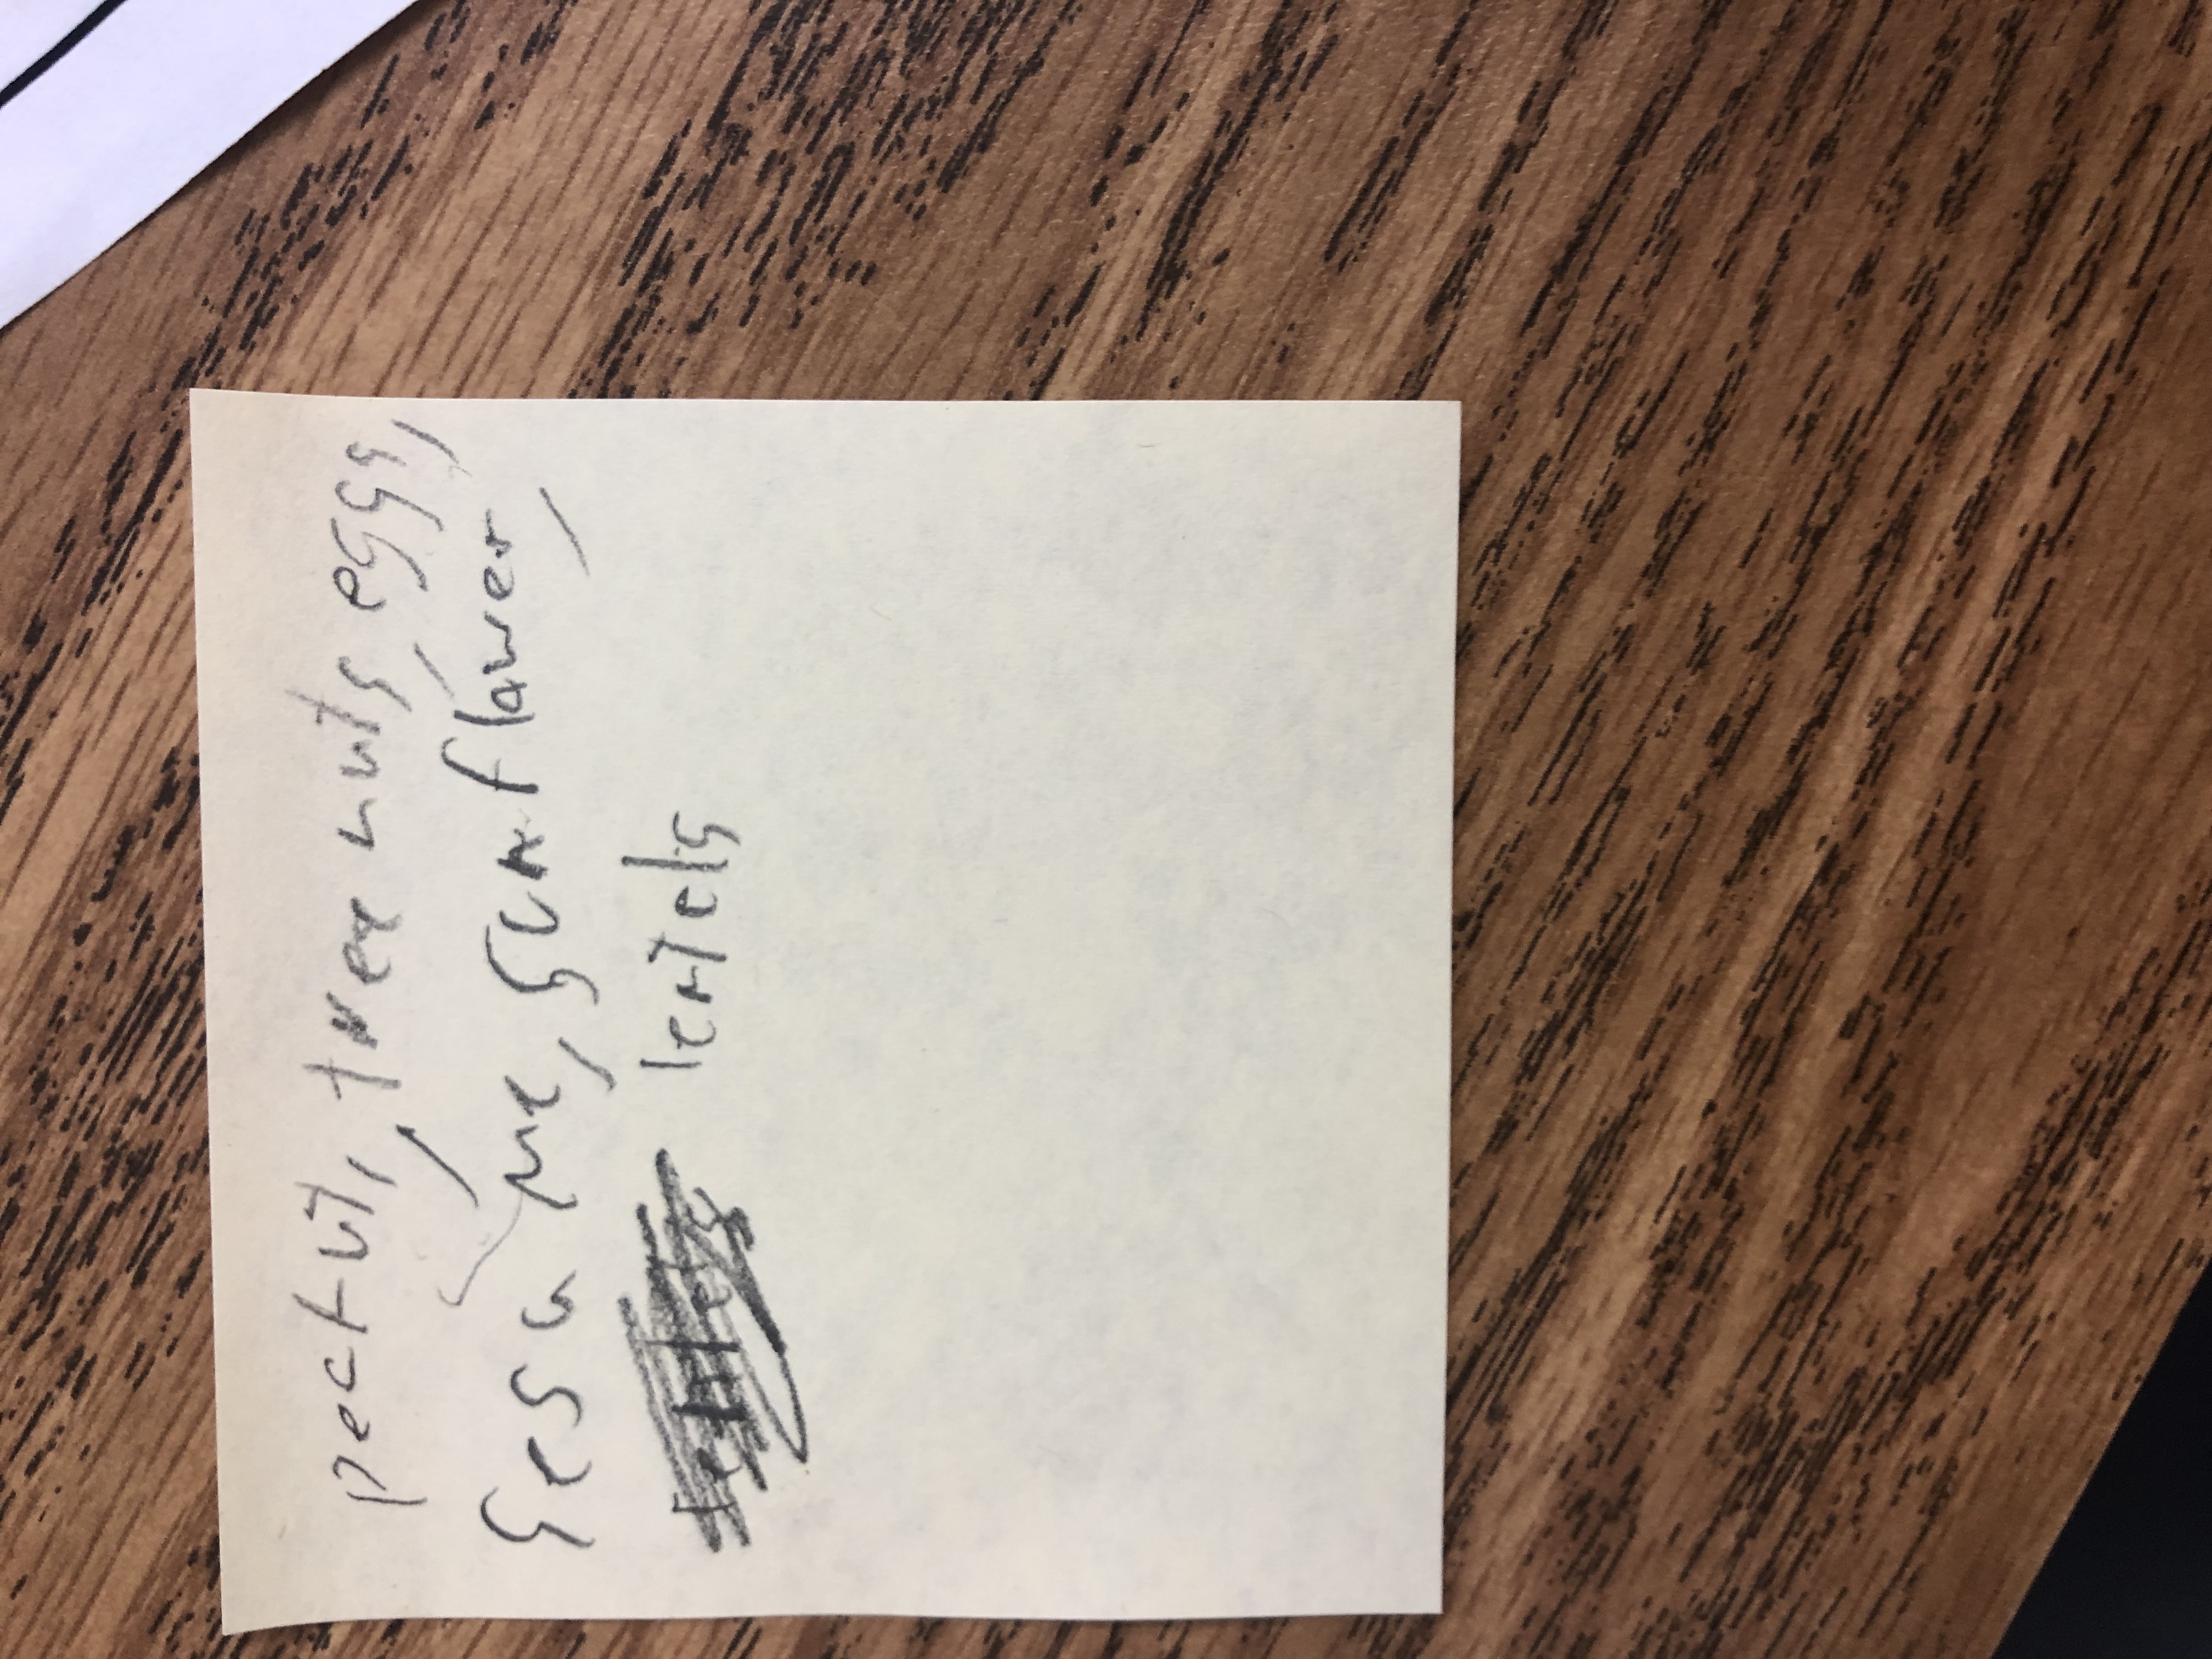 peanut, tree nuts, eggs,
Sesame, sunflower,
lentels lentels